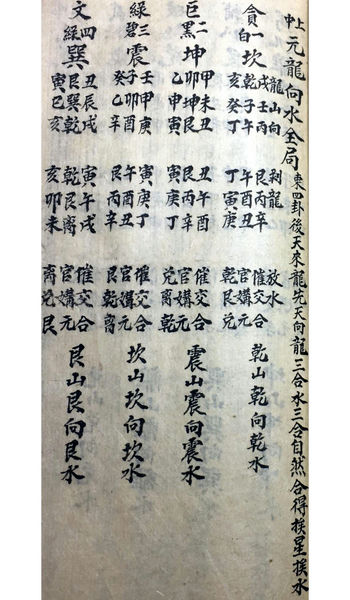 上中元龍向水全局 東四卦後天來龍先天向龍三合水三合自然合得挨星挨水
龍山向 剝龍 放水
貪一白坎 戌壬丙 艮丙辛 催交合 乾山乾向乾水
乾子午 午酉丑 官媾元
亥癸丁 丁寅庚 乾艮兌
巨二黑坤 甲未丑 丑午酉 催交合 震山震向震水
卯坤艮 艮丙辛 官媾元
乙申寅 寅庚丁 兌離乾
綠三碧震 壬甲庚 寅庚丁 催交合 坎山坎向坎水
子卯酉 午酉丑 官媾元
癸乙辛 艮丙辛 艮乾離
文四綠巽 丑辰戌 寅午戌 催交合 艮山艮向艮水
艮巽乾 乾艮離 官媾元
寅巳亥 亥卯未 離兌艮